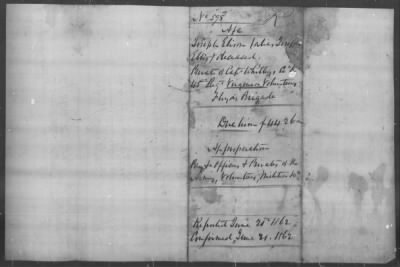 No 578
Joseph Elison (alias Joseph
Ellis) Deceased.
Private of Capt Whitley's Co "K"
45th Regt Virginia Volunteers
Floyd's Brigade
Due him $44.26
Appropriation
Pay to Officers & Privates of the
Army, Volunteers, Militia &c
Reported June 20th 1862.
Confirmed June 21. 1862